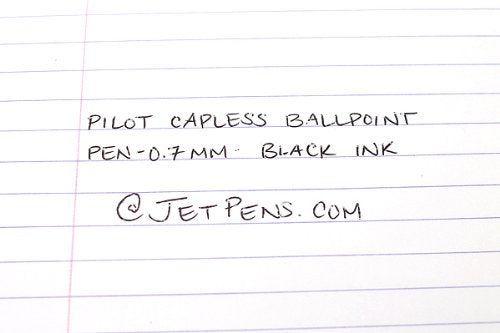 PILOT CAPLESS BALLPOINT
PEN-0.7MM· BLACK INK
@JETPENS.COM